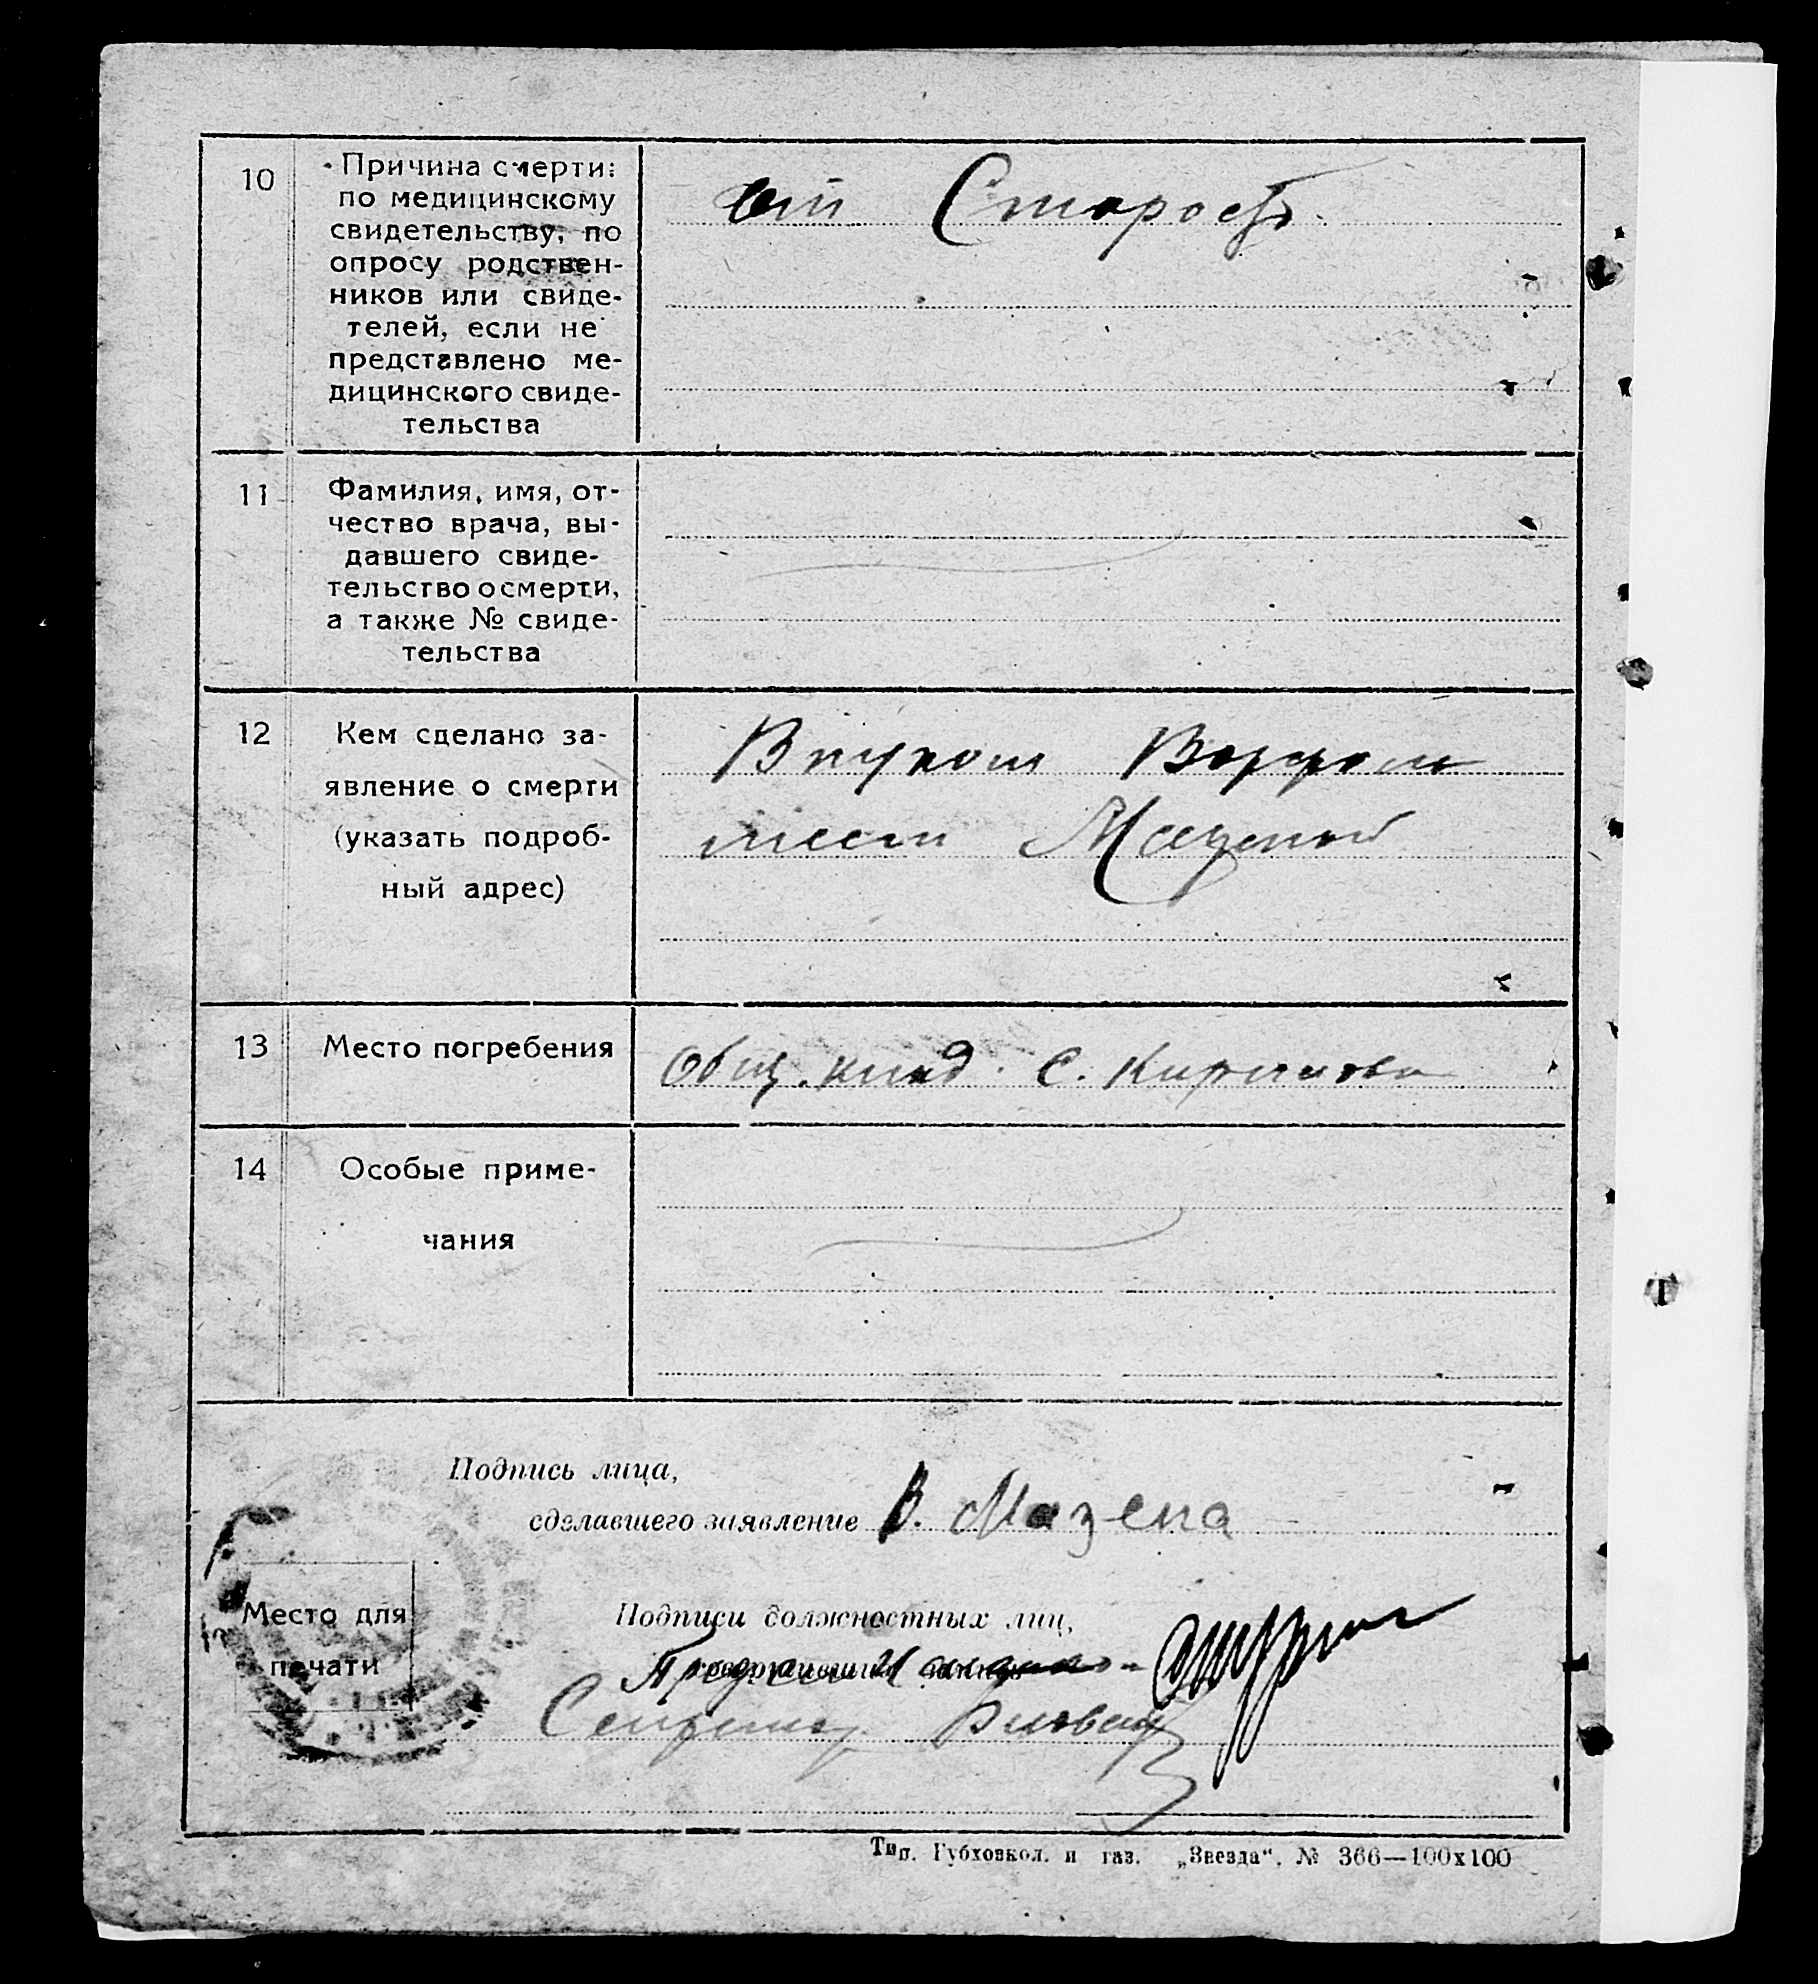 10
Причина смерти:
по медицинскому
свидетельству, по
опросу родствен-
ников или свиде-
телей, если не
представлено ме-
дицинского свиде-
тельства
от Старости
11
Фамилия, имя, от-
чество врача, вы-
давшего свиде-
тельство о смерти,
а также № свиде-
тельства
12
Кем сделано за-
явление о смерти
(указать подроб-
ный адрес)
Внуком
13
Место погребения
Общ. клад. с.
14
Особые приме-
чания
Подпись лица,
сделавшего заявление В. Мазепа
Место для
печати
Подписи должностных лиц,
Тип. Губховкол. и газ. „Звезда“. № 366—100х100